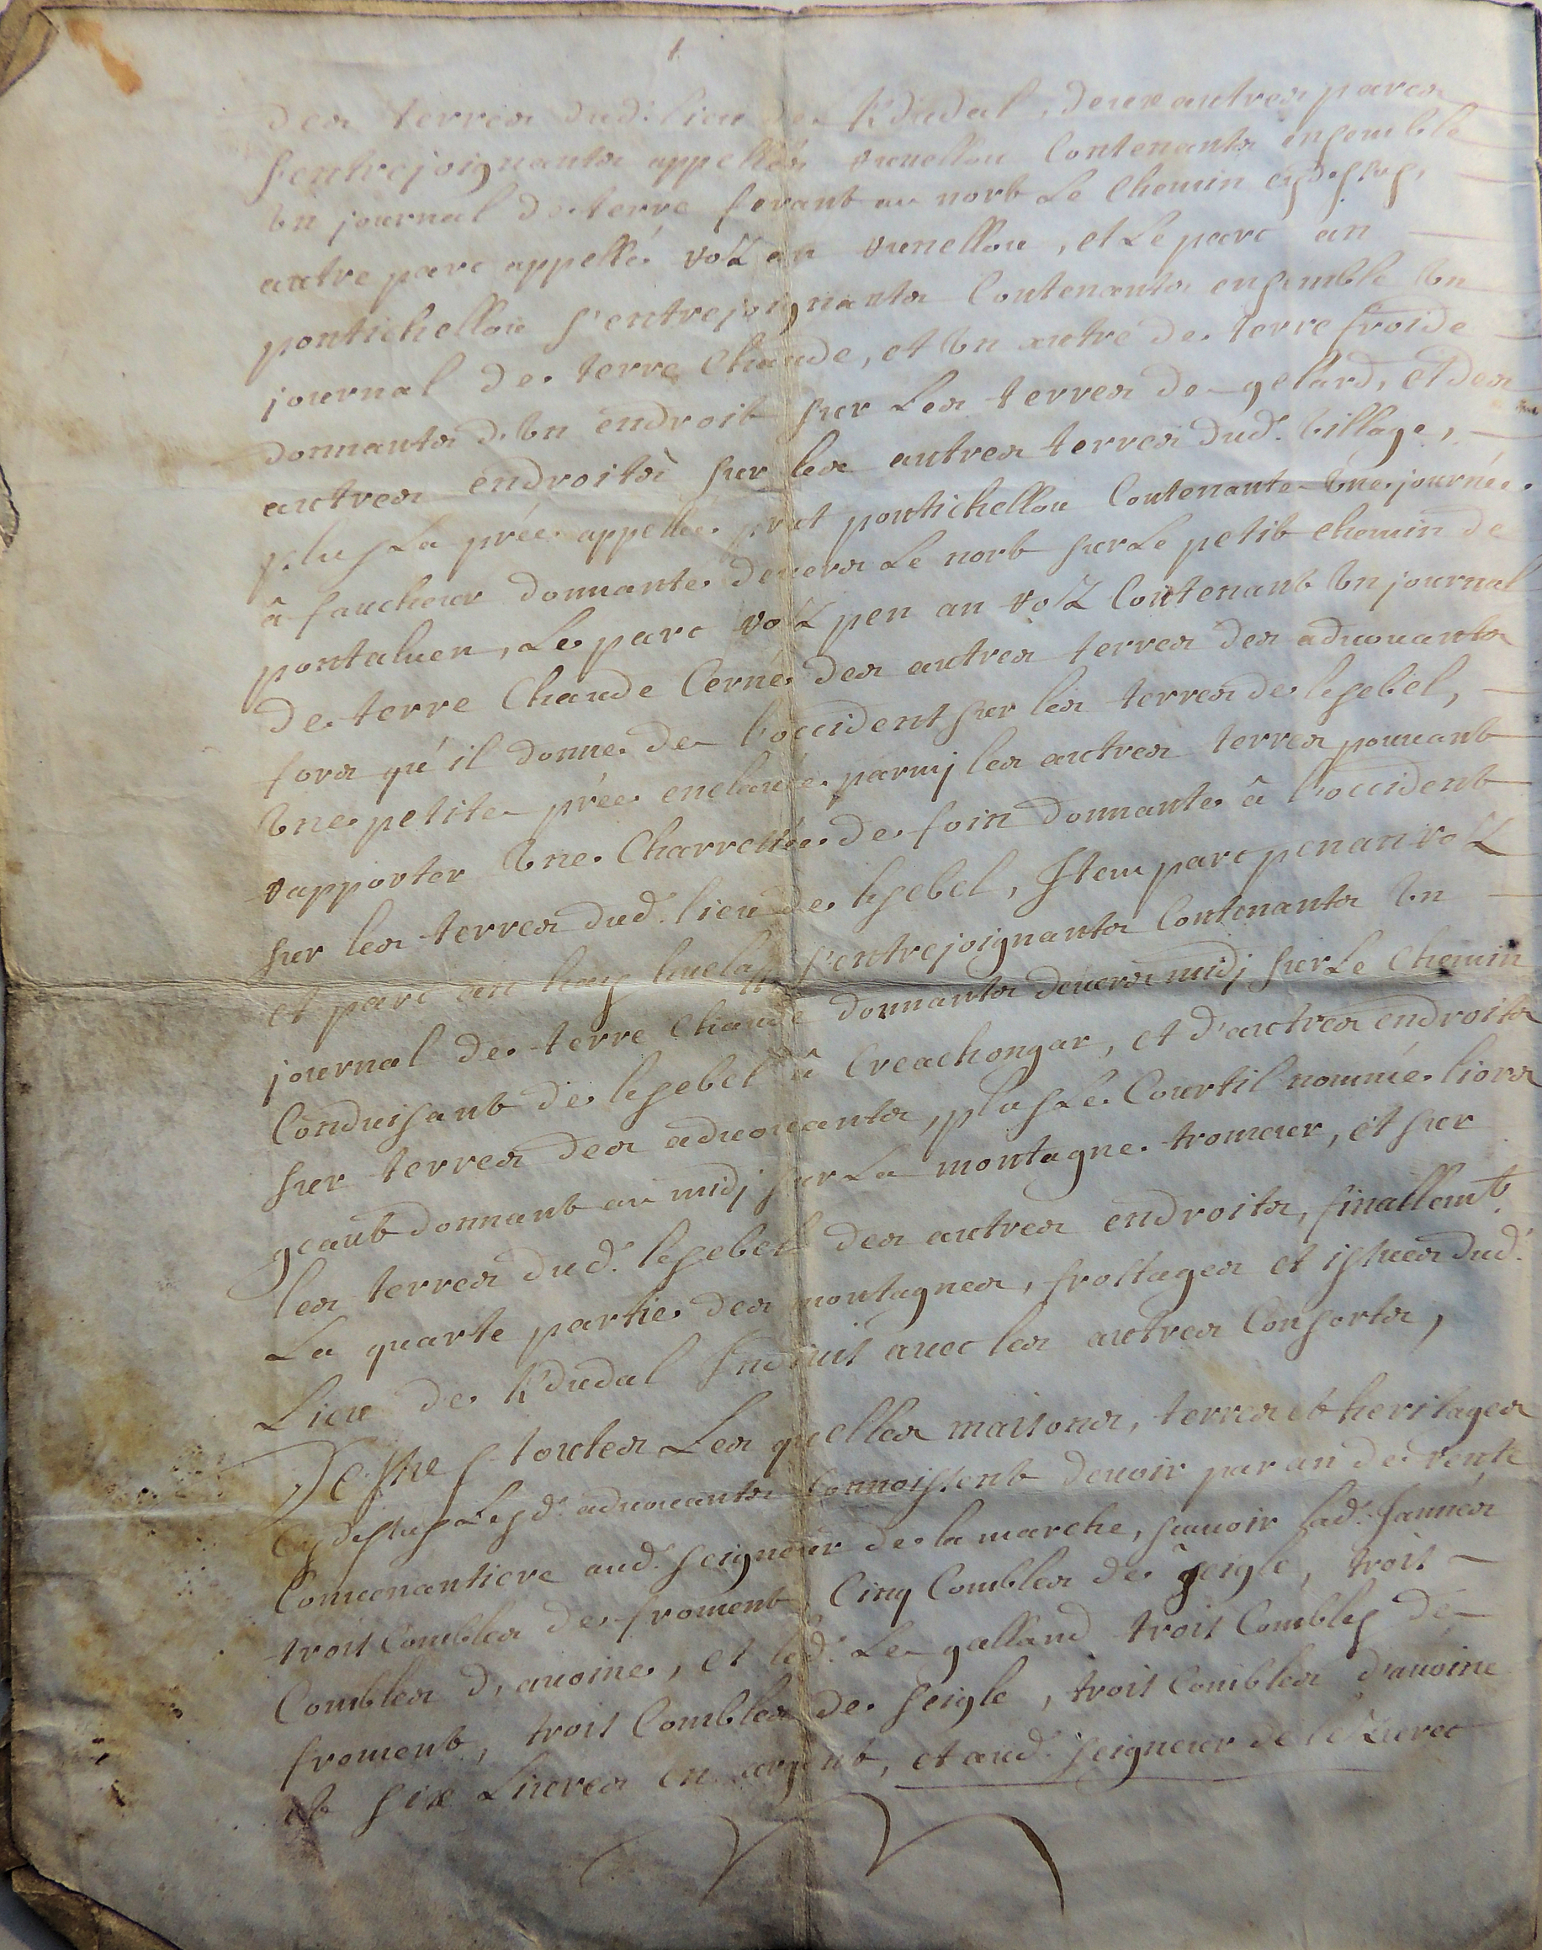 des terres dud. lieu de K/dudal, deux autres parcs
s'entrejoignants appellés runellou Contenants ensemble
Un journal de terre ferant au nort Le Chemin cydessus,
autre parc appellé volz an runellou, et Le parc an
pontichellou s'entrejoignants Contenants ensemble Un
journal de terre Chaude, et Un autre de terre froide
donnants d'Un endroit sur Les terres de gelard, et des
autres endroits sur les autres terres dud. Village,
plus La prée appellée prat pontichellou Contenante Une journée
â faucheur donnante devers Le nort sur Le petit chemin de
pontaluen, Le parc volz pen an volz Contenant Un journal
de terre Chaude Cerné des autres terres des aduouants
fors qu'il donne de l'occident sur les terres de lesebel,
Une petite prée enclavée parmj les autres terres pouuant
rapporter Une Charrettée de foin donnante â l'occident
sur les terres dud. lieu de lesebel, Item parc penanvolz
et parc an hay huelan s'entrejoignants Contenants Un
journal de terre Chaude donnants deuers midj sur Le Chemin
Conduisant de lesebel â Creachongar, et d'autres endroits
sur terres des aduouants, plus Le Courtil nommé liors
geant donnant au midj sur La montagne tromeur, et sur
les terres dud. lesebel des autres endroits, finallemt.
La quarte partie des montagnes, frostages et issues dud.
Lieu de K/dudal Indiuis auec les autres Consorts,
Desur toutes Les quelles maisons, terres et heritages
Cydessus Lesd. aduouants Connoissent deuoir par an de rente
Conuenantiere aud. seigneur de la marche, scauoir lad. Jannés
trois Combles de froment Cinq Combles de seigle, trois
Combles d'auoine, et led. Le galland trois Combles de
froment, trois Combles de seigle, trois Combles d'auoine
et six Liures en argent, et aud. seigneur de leszuec